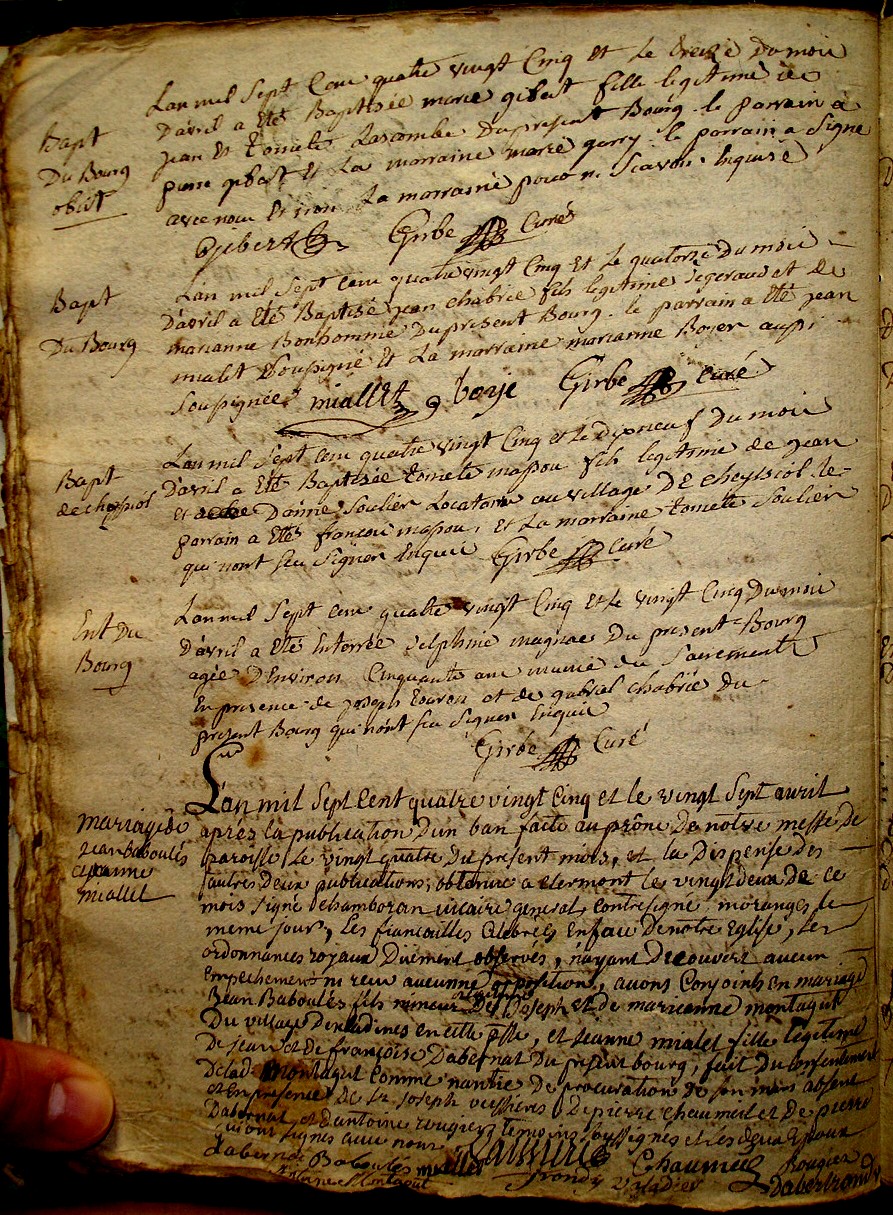 Bapt
Du Bourg
obiit
Lan mil Sept Cent quatre vingt Cinq et le treize du mois
D'avril a été Baptisée marie gibert fille legitime de
jean et toinete Lascombe Du present Bourg. le parrain a
pierre gibert et La marraine marie garry le parrain a Signe
avec nous et non La marraine pour ne Scavoir Enquise
Gibert Girbe Curé
Bapt
Du Bourg
L'an mil Sept Cent quatre vingt Cinq et le quatorze Du mois
D'avril a été Baptisé jean chabrie fils legitime de geraud et de
marianne Bonhomme Du present Bourg. le parrain a été jean
mialet Soussigné et La marraine marianne Boyer aussi
Soussignée miallet boyé Girbe Curé
Bapt
de cheyssiol
Lan mil Sept Cent quatre vingt Cinq et le dixneuf Du mois
D'avril a été Baptisée toinete massou fils legitime de jean
et D'anne Soulier Locataire au village DE cheyssiol. le
parrain a été françois massou, et La marraine toinete Soulier
qui n'ont seu Signer Enquis Girbe Curé
Ent du
Bourg
Lan mil Sept Cent quatre vingt Cinq et le vingt Cinq Du mois
D'avril a été Enterrée delphine magnac Du present Bourg
agée D'Environ Cinquante ans munie des Sacrements
En presence de joseph et de gabriel chabrie du
present Bourg qui n'ont seu Signer Enquis
Girbe Curé
mariage de
jean baboulès
et jeanne
miallet
L'an mil Sept Cent quatre vingt Cinq et le vingt Sept avril
après la publication d'un ban faite au prône De notre messe de
paroisse le vingt quatre Du present mois, et la Dispense des
autres Deux publications, obtenue a clermont le vingt deux de ce
mois signé chamboran vicaire general, contresigné moranges le
meme jour, Les fiancailles Celebrées En face De notre Eglise, Les
ordonnances royaux Duement observés, n'ayant Decouvert aucun
empechement ni reçu aucunne opposition, avons Conjoints en mariage
Jean Baboulès fils mineur De Joseph et de marianne montagut
Du village De en cette psse, et Jeanne mialet fille legitime
de Jean et de françoise Dabernat Du present bourg, fait du consentement
De lad. montagut comme nantie De procuration de son mari absent
et En presence De Sr. Joseph veissieres De pierre chaumeil et de pierre
Dabernat et d'antoine rougier temoins soussignés et les deux Epoux
qui ont signés avec nous
Dabernat Baboulès miallet Chaumeil Rougier
Montagut Trondy